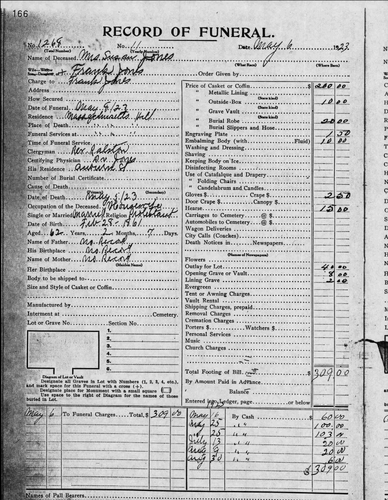 166
RECORD OF FUNERAL.
No. 1268 No. 11 Date, May 6 1923
(Total Number) (Yearly Number)
Name of Deceased Mrs Susan Jones
(What Born) (Where Born)
Frank Jones
Charge to Frank Jones
Address
How Secured
Date of Funeral May 8/23
Residence Massachusetts
Place of Death
Funeral Services at
Time of Funeral Service
Clergyman Rev
Certifying Physician Dr Jones
His Residence
Number of Burial Certificate
Cause of Death
Date of Death May 5/23
Occupation of the Deceased Housewife
Single or Married Married Religion Protestant
Date of Birth Feb 28 1861
Aged 62 Years 2 Months 7 Days
Name of Father No Record
His Birthplace No Record
Name of Mother No Record
(Maiden Name)
Her Birthplace
Body to be Shipped to
Size and Style of Casket or Coffin
Manufactured by
Interment at Cemetery.
Lot or Grave No. Section No.
1
2
3
4
5
6
Diagram of Lot or Vault
Designate all Graves in Lot with Numbers (1, 2, 3, 4, etc.), and mark space for this Funeral with a cross (+).
Designate place for Monument with a small square
Use space to right of Diagram for names of those buried in Lot.
Order Given by
Price of Casket or Coffin $ 200 00
" Metallic Lining
" Outside-Box 10 00
" Grave Vault
" Burial Robe 20 00
" Burial Slippers and Hose
Engraving Plate 1 50
Embalming Body (with Fluid) 10 00
Washing and Dressing
Shaving
Keeping Body on Ice
Disinfecting Rooms
Use of Catafalque and Drapery
" Folding Chairs
" Candelabrum and Candles
Gloves $ Crape $ 2 50
Door Crape $ Canopy $
Hearse 15 00
Carriages to Cemetery @ $
Automobiles to Cemetery @ $
Wagon Deliveries
City Calls (Coaches)
Death Notices in Newspapers
(Names of Newspapers)
Flowers
Outlay for Lot 40 00
Opening Grave or Vault 8 00
Lining Grave 2 00
Evergreen
Tent or Awning Charges
Vault Rental
Shipping Charges, prepaid
Removal Charges
Cremation Charges
Porters $ Watchers $
Personal Services
Music
Church Charges
Total Footing of Bill $ 309 00
By Amount Paid in Advance
Balance
Entered into Ledger, page or below.
May 6 To Funeral Charges $ 309 00
By Cash $ 60 00
July 25 " " 100 00
July 13 " " 20 00
" " 20 00
Aug 30 " "
$ 309 00
Names of Pall Bearers